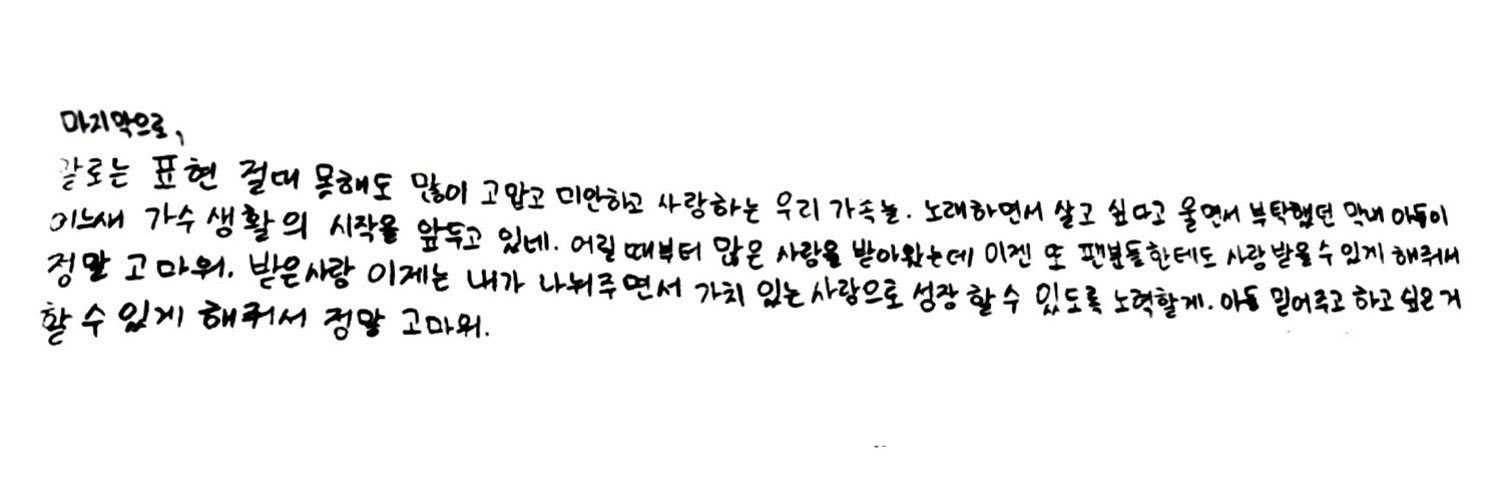 마지막으로,
겉로는 표현 절대 못해도 많이 고맙고 미안하고 사랑하는 우리 가족들. 노래하면서 살고 싶다고 울면서 부탁했던 막내 아들이
어느새 가수 생활의 시작을 앞두고 있네. 어릴 때부터 많은 사랑을 받아왔는데 이젠 또 팬분들한테도 사랑 받을 수 있게 해줘서
정말 고마워. 받은사랑 이제는 내가 나눠주면서 가치 있는 사람으로 성장 할 수 있도록 노력할게. 아들 믿어주고 하고 싶은 거
할 수 있게 해줘서 정말 고마워.